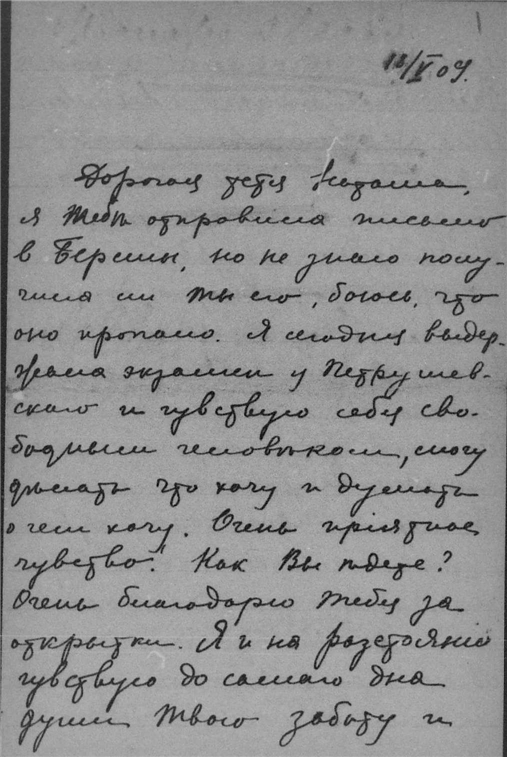 1
12/V 09.
Дорогая тетя Наташа,
я тебѣ отправила письмо
в Берлин, но не знаю полу-
чила ли ты его, боюсь, что
оно пропало. Я сегодня выдер-
жала экзамен у Петрушев-
скаго и чувствую себя сво-
бодным человѣком, могу
дѣлать что хочу и думать
о чем хочу. Очень прiятное
чувство! Как Вы
Очень благодарю тебя за
открытки. Я и на разстоянiи
чувствую до самаго дна
души твою заботу и